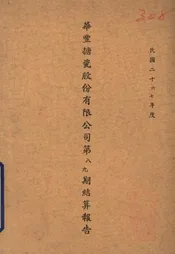 民國二十六七年度
華豐搪瓷股份有限公司第八九期結算報告